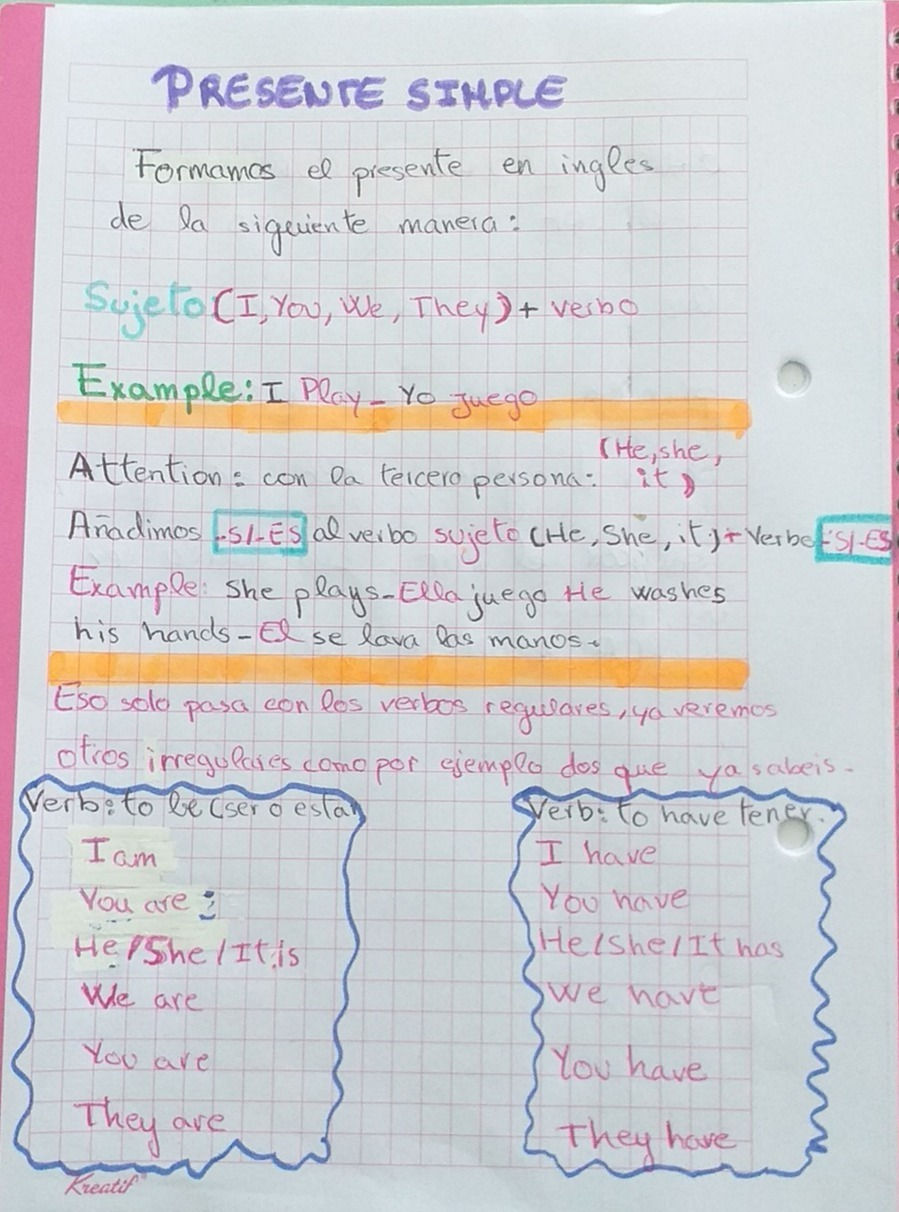 PRESENTE SIMPLE
Formamos el presente en ingles
de la siguiente manera:
Sujeto (I, You, We, They) + verbo
Example: I Play - Yo juego
(He, she,
Attention: con la tercero persona: it)
Añadimos -S/-ES al verbo sujeto (He, She, it) + Verbo -S/-ES
Example: She plays - Ella juego He washes
his hands - El se lava las manos.
Eso solo pasa con los verbos regulares, ya veremos
otros irregulares como por ejemplo dos que ya sabeis.
Verb: to be (ser o estar)
I am
You are :
He/She/It is
We are
You are
They are
Verb: to have tener.
I have
You have
He/She/It has
We have
You have
They have
Kreatif